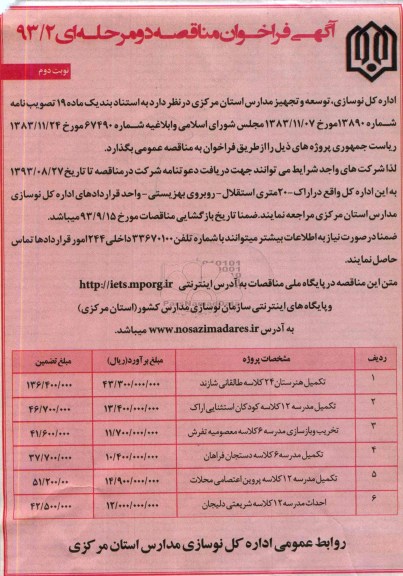 آگهی فراخوان مناقصه دو مرحله‌ای ۹۳/۲
نوبت دوم
اداره کل نوسازی، توسعه و تجهیز مدارس استان مرکزی در نظر دارد به استناد بند یک ماده ۱۹ تصویب نامه
شماره ۱۳۸۹۰ مورخ ۱۳۸۳/۱۱/۰۷ مجلس شورای اسلامی و ابلاغیه شماره ۶۷۴۹۰ مورخ ۱۳۸۳/۱۱/۲۴
ریاست جمهوری پروژه های ذیل را از طریق فراخوان به مناقصه عمومی بگذارد.
لذا شرکت های واجد شرایط می توانند جهت دریافت دعوتنامه شرکت در مناقصه تا تاریخ ۱۳۹۳/۰۸/۲۷
به این اداره کل واقع در اراک-۲۰متری استقلال-روبروی بهزیستی-واحد قراردادهای اداره کل نوسازی
مدارس استان مرکزی مراجعه نمایند. ضمنا تاریخ بازگشایی مناقصات مورخ ۹۳/۹/۱۵ میباشد.
ضمنا در صورت نیاز به اطلاعات بیشتر میتوانند با شماره تلفن ۳۳۶۷۰۱۰۰ داخلی ۲۴۴ امور قراردادها تماس
حاصل نمایند.
متن این مناقصه در پایگاه ملی مناقصات به آدرس اینترنتی http://iets.mporg.ir
و پایگاه های اینترنتی سازمان نوسازی مدارس کشور (استان مرکزی)
به آدرس www.nosazimadares.ir میباشد.
ردیف مشخصات پروژه مبلغ برآورد (ریال) مبلغ تضمین
۱ تکمیل هنرستان ۲۴ کلاسه طالقانی شازند ۴۳/۳۰۰/۰۰۰/۰۰۰ ۱۳۶/۴۰۰/۰۰۰
۲ تکمیل مدرسه ۱۲ کلاسه کودکان استثنایی اراک ۱۳/۴۰۰/۰۰۰/۰۰۰ ۴۶/۷۰۰/۰۰۰
۳ تخریب و بازسازی مدرسه ۶ کلاسه معصومیه تفرش ۱۱/۷۰۰/۰۰۰/۰۰۰ ۴۱/۶۰۰/۰۰۰
۴ تکمیل مدرسه ۶ کلاسه دستجان فراهان ۱۰/۴۰۰/۰۰۰/۰۰۰ ۳۷/۷۰۰/۰۰۰
۵ تکمیل مدرسه ۱۲ کلاسه پروین اعتصامی محلات ۱۴/۹۰۰/۰۰۰/۰۰۰ ۵۱/۲۰۰/۰۰
۶ احداث مدرسه ۱۲ کلاسه شریعتی دلیجان ۱۲/۰۰۰/۰۰۰/۰۰۰ ۴۲/۵۰۰/۰۰۰
روابط عمومی اداره کل نوسازی مدارس استان مرکزی